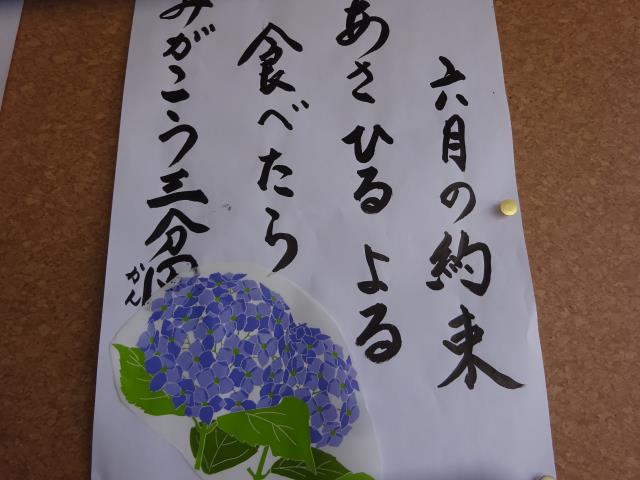 六月の約束
あさ ひる よる
食べたら
みがこう三分
かん